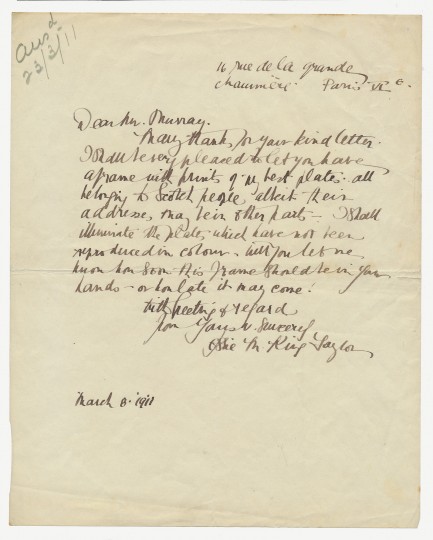 Ansd
23/3/11
16 rue de la Grande
Chaumière Paris VI e
Dear Mr. Murray.
Many thanks for your kind letter.
I shall be very pleased to let you have
a frame with prints of my best plates - all
belonging to Scotch people, albeit their
address may be in other parts - I shall
illuminate the plates which have not been
reproduced in colour. Will you let me
know how soon this frame should be in your
hands - or how late it may come!
With Greeting & regard
from Yours v. Sincerely
M. King Taylor
March 8. 1911